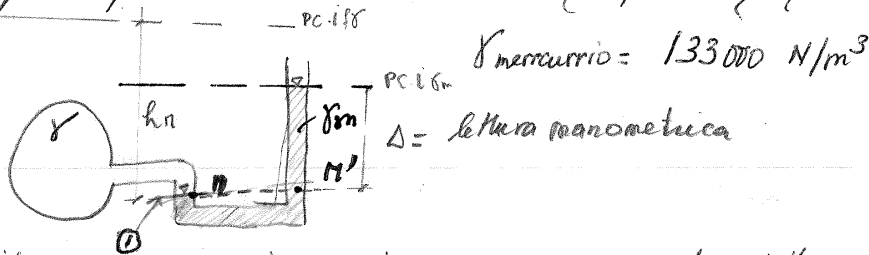 PC.i γ
γ mercurrio = 133000 N/m³
PC.i γm
hn
γ
γm
Δ = lettura manometrica
M'
1